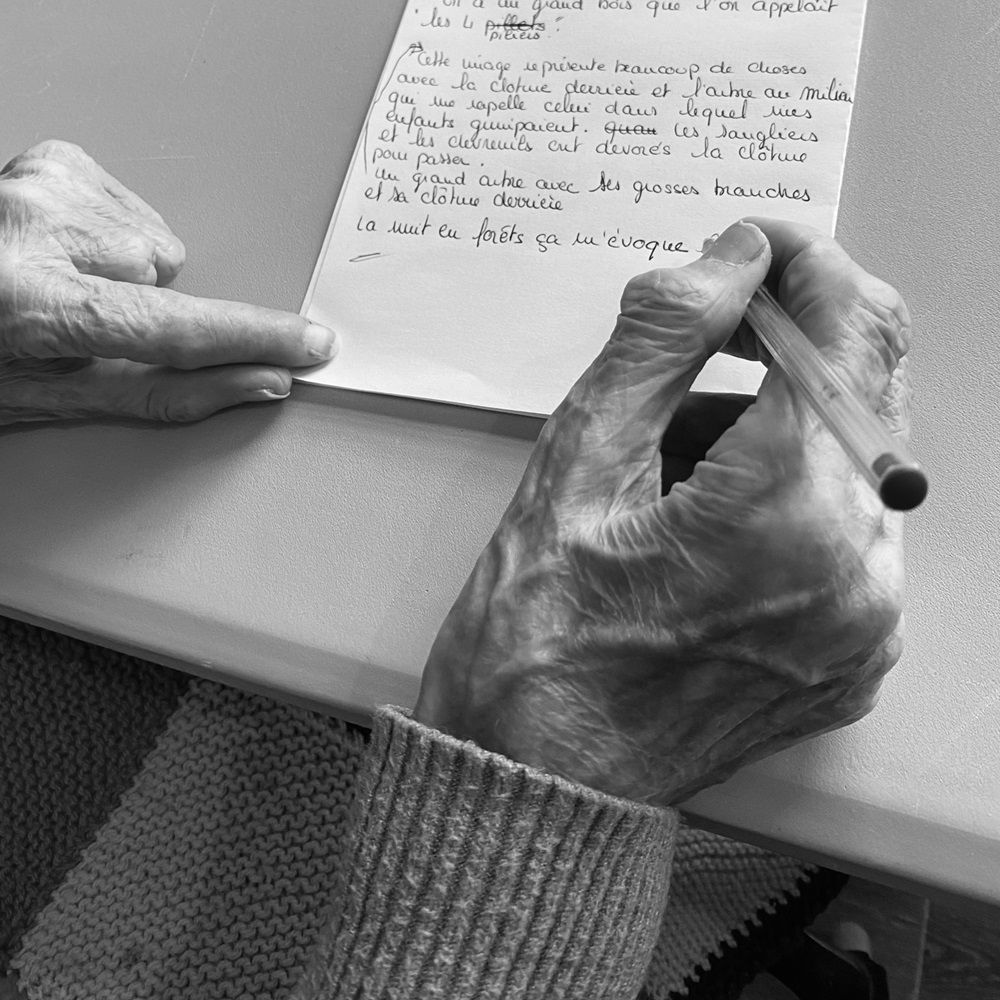 on a un grand bois que l'on appelait
"les 4 pillers".
piliers
Cette image représente beaucoup de choses
avec la cloture derrière et l'arbre au milieu
qui me rapelle celui dans lequel mes
enfants grimpaient. Quan les sangliers
et les chevreuils ont dévorés la clôture
pour passer.
Un grand arbre avec ses grosses branches
et sa clôture derrière
La nuit en forêts ça m'évoque